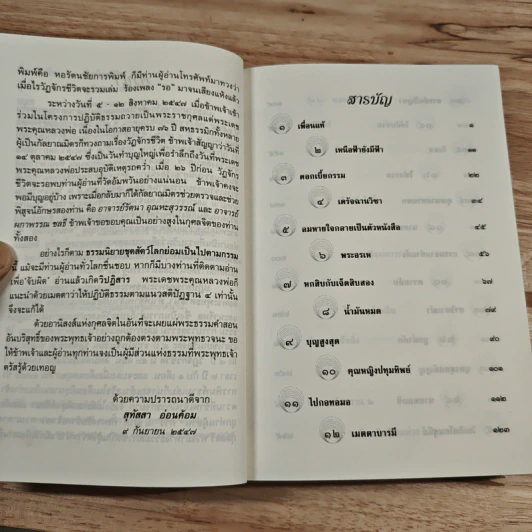 พิมพ์คือ หอรัตนชัยการพิมพ์ ก็มีท่านผู้อ่านโทรศัพท์มาทวงว่า
เมื่อไรวัฏจักรชีวิตจะรวมเล่ม ร้องเพลง "รอ" มาจนเสียงแห้งแล้ว
ระหว่างวันที่ ๕ - ๑๒ สิงหาคม ๒๕๔๗ เมื่อข้าพเจ้าเข้า
ร่วมในโครงการปฏิบัติธรรมถวายเป็นพระราชกุศลแด่พระเดช
พระคุณหลวงพ่อ เนื่องในโอกาสอายุครบ ๗๖ ปี สหธรรมิกทั้งหลาย
ผู้เป็นกัลยาณมิตรก็ทวงถามเรื่องวัฏจักรชีวิต ข้าพเจ้าสัญญาว่าวันที่
๑๔ ตุลาคม ๒๕๔๗ ซึ่งเป็นวันทำบุญใหญ่เพื่อรำลึกถึงวันที่พระเดช
พระคุณหลวงพ่อประสบอุบัติเหตุรถคว่ำ เมื่อ ๒๖ ปีก่อน วัฏจักร
ชีวิตจะรอพบท่านผู้อ่านที่วัดอัมพวันอย่างแน่นอน ข้าพเจ้าคงจะ
พอมีบุญอยู่บ้าง เพราะเมื่อกลับมาก็ได้กัลยาณมิตรช่วยตรวจและช่วย
พิสูจน์อักษรสองท่าน คือ อาจารย์รัตนา อุณหะสุวรรณ์ และ อาจารย์
ผกาพรรณ ชลธี ข้าพเจ้าขอขอบคุณเป็นอย่างสูงในกุศลจิตของท่าน
ทั้งสอง
อย่างไรก็ตาม ธรรมนิยายชุดสัตว์โลกย่อมเป็นไปตามกรรม
นี้ แม้จะมีท่านผู้อ่านทั่วโลกชื่นชอบ หากก็มีบางท่านที่ติดตามอ่าน
เพื่อ "จับผิด" อ่านแล้วเกิดวิปฏิสาร พระเดชพระคุณหลวงพ่อก็
แนะนำด้วยเมตตาว่าให้ปฏิบัติธรรมตามแนวสติปัฏฐาน ๔ เท่านั้น
จึงจะแก้ได้
ด้วยอานิสงส์แห่งกุศลจิตในอันที่จะเผยแผ่พระธรรมคำสอน
อันบริสุทธิ์ของพระพุทธเจ้าอย่างถูกต้องตรงตามพระพุทธวจนะ ขอ
ให้ข้าพเจ้าและผู้อ่านทุกท่านจงเป็นผู้มีส่วนแห่งธรรมที่พระพุทธเจ้า
ตรัสรู้ด้วยเทอญ
ด้วยความปรารถนาดีจาก
สุทัสสา อ่อนค้อม
๙ กันยายน ๒๕๔๗
สารบัญ
๑ เพื่อนแท้ ๑
๒ เหนือฟ้ายังมีฟ้า ๑๑
๓ ดอกเบี้ยกรรม ๒๒
๔ เดรัจฉานวิชา ๓๔
๕ ลมหายใจกลายเป็นตัวหนังสือ ๔๕
๖ พระอรเพ ๕๖
๗ หกสิบกับเจ็ดสิบสอง ๖๗
๘ น้ำมันหมด ๗๙
๙ บุญสูงสุด ๙๐
๑๐ คุณหญิงปทุมทิพย์ ๑๐๑
๑๑ ไปกอทอมอ ๑๑๒
๑๒ เมตตาบารมี ๑๒๓